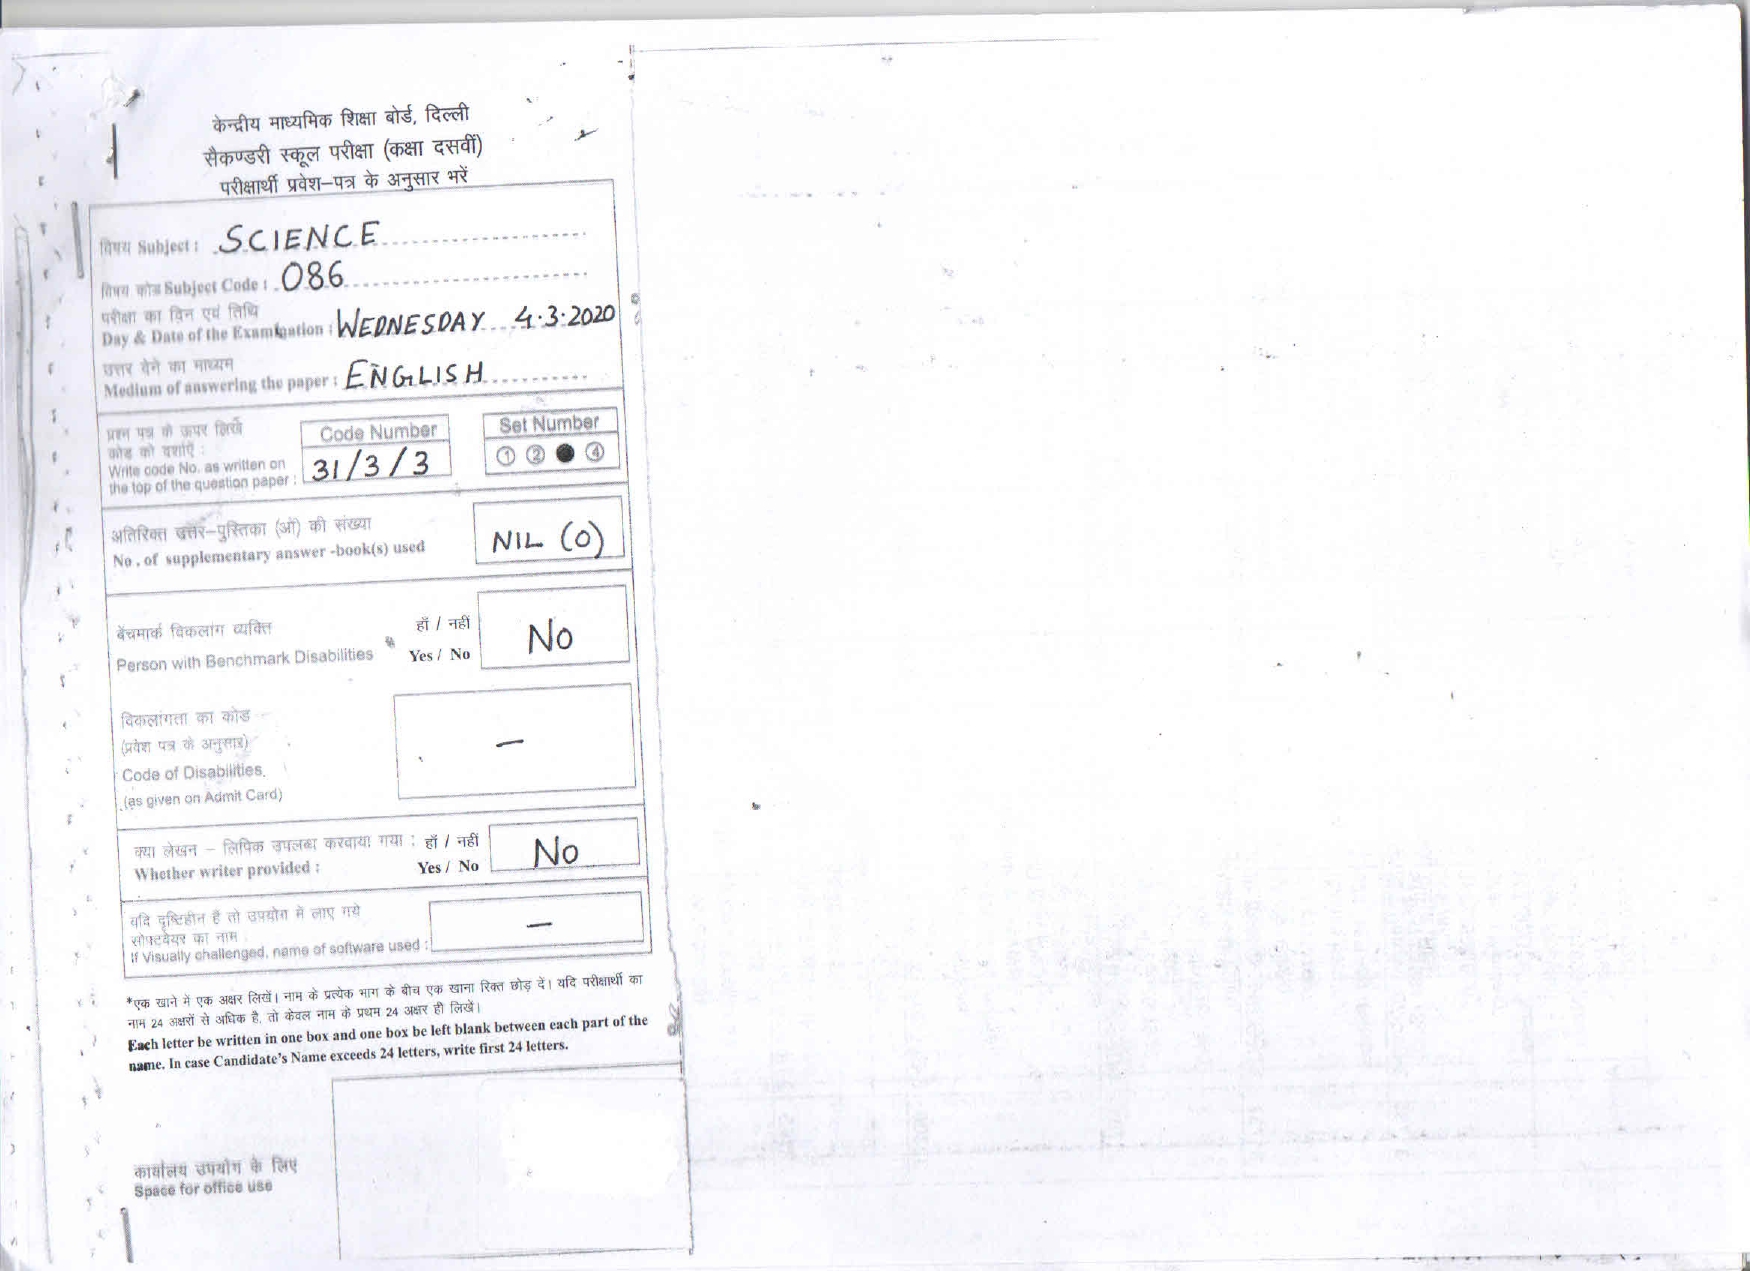 केन्द्रीय माध्यमिक शिक्षा बोर्ड, दिल्ली
सैकण्डरी स्कूल परीक्षा (कक्षा दसवीं)
परीक्षार्थी प्रवेश–पत्र के अनुसार भरें
विषय Subject : SCIENCE
विषय कोड Subject Code : 086
परीक्षा का दिन एवं तिथि
Day & Date of the Examination : WEDNESDAY 4.3.2020
उत्तर देने का माध्यम
Medium of answering the paper : ENGLISH
प्रश्न पत्र के ऊपर लिखें
कोड को दर्शाएं :
Write code No. as written on
the top of the question paper :
Code Number
31/3/3
Set Number
① ② ● ④
अतिरिक्त उत्तर–पुस्तिका (ओं) की संख्या
No. of supplementary answer -book(s) used
NIL (0)
बेंचमार्क विकलांग व्यक्ति हाँ / नहीं
Person with Benchmark Disabilities Yes / No
No
विकलांगता का कोड
(प्रवेश पत्र के अनुसार)
Code of Disabilities.
(as given on Admit Card)
—
क्या लेखन – लिपिक उपलब्ध करवाया गया : हाँ / नहीं
Whether writer provided : Yes / No
No
यदि दृष्टिहीन है तो उपयोग में लाए गये
सोफ्टवेयर का नाम
If Visually challenged, name of software used :
—
*एक खाने में एक अक्षर लिखें। नाम के प्रत्येक भाग के बीच एक खाना रिक्त छोड़ दें। यदि परीक्षार्थी का
नाम 24 अक्षरों से अधिक है, तो केवल नाम के प्रथम 24 अक्षर ही लिखें।
Each letter be written in one box and one box be left blank between each part of the
name. In case Candidate's Name exceeds 24 letters, write first 24 letters.
कार्यालय उपयोग के लिए
Space for office use